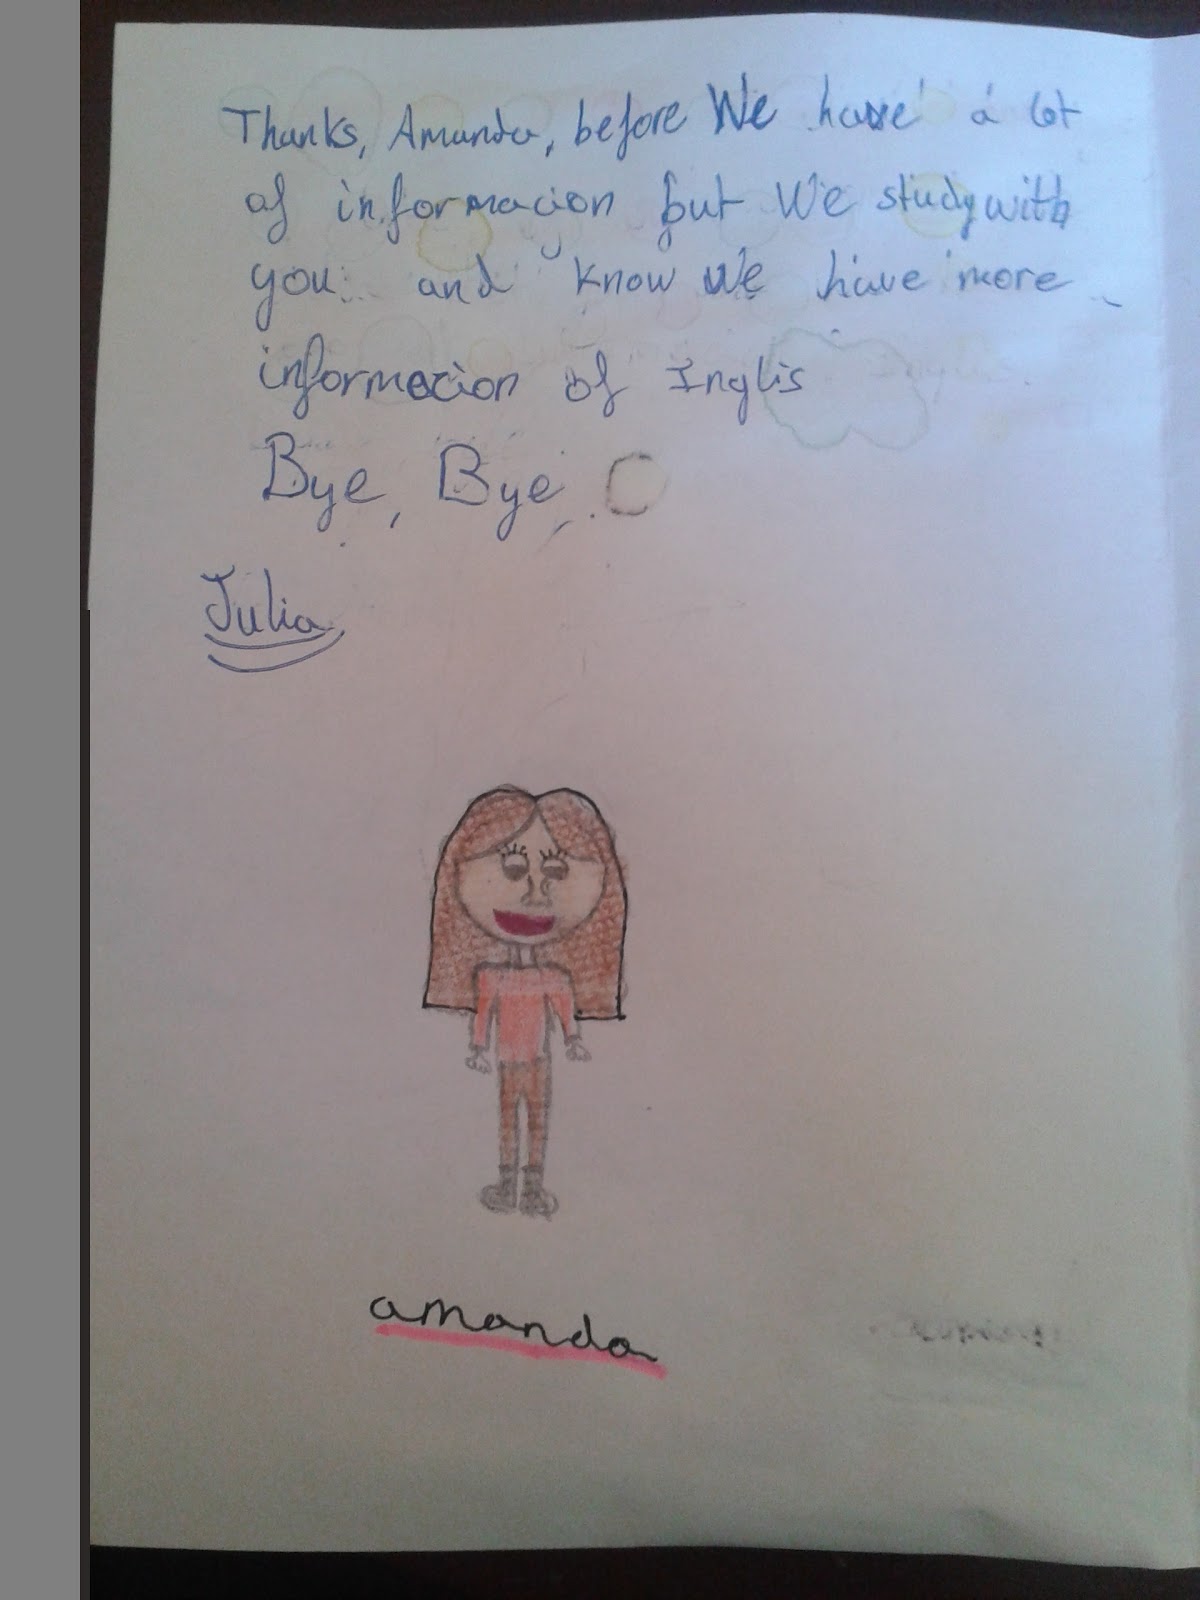 Thanks, Amanda, before We have a lot
of informacion but We study with
you: and know We have more
informacion of Inglis
Bye, Bye
Julia
amanda